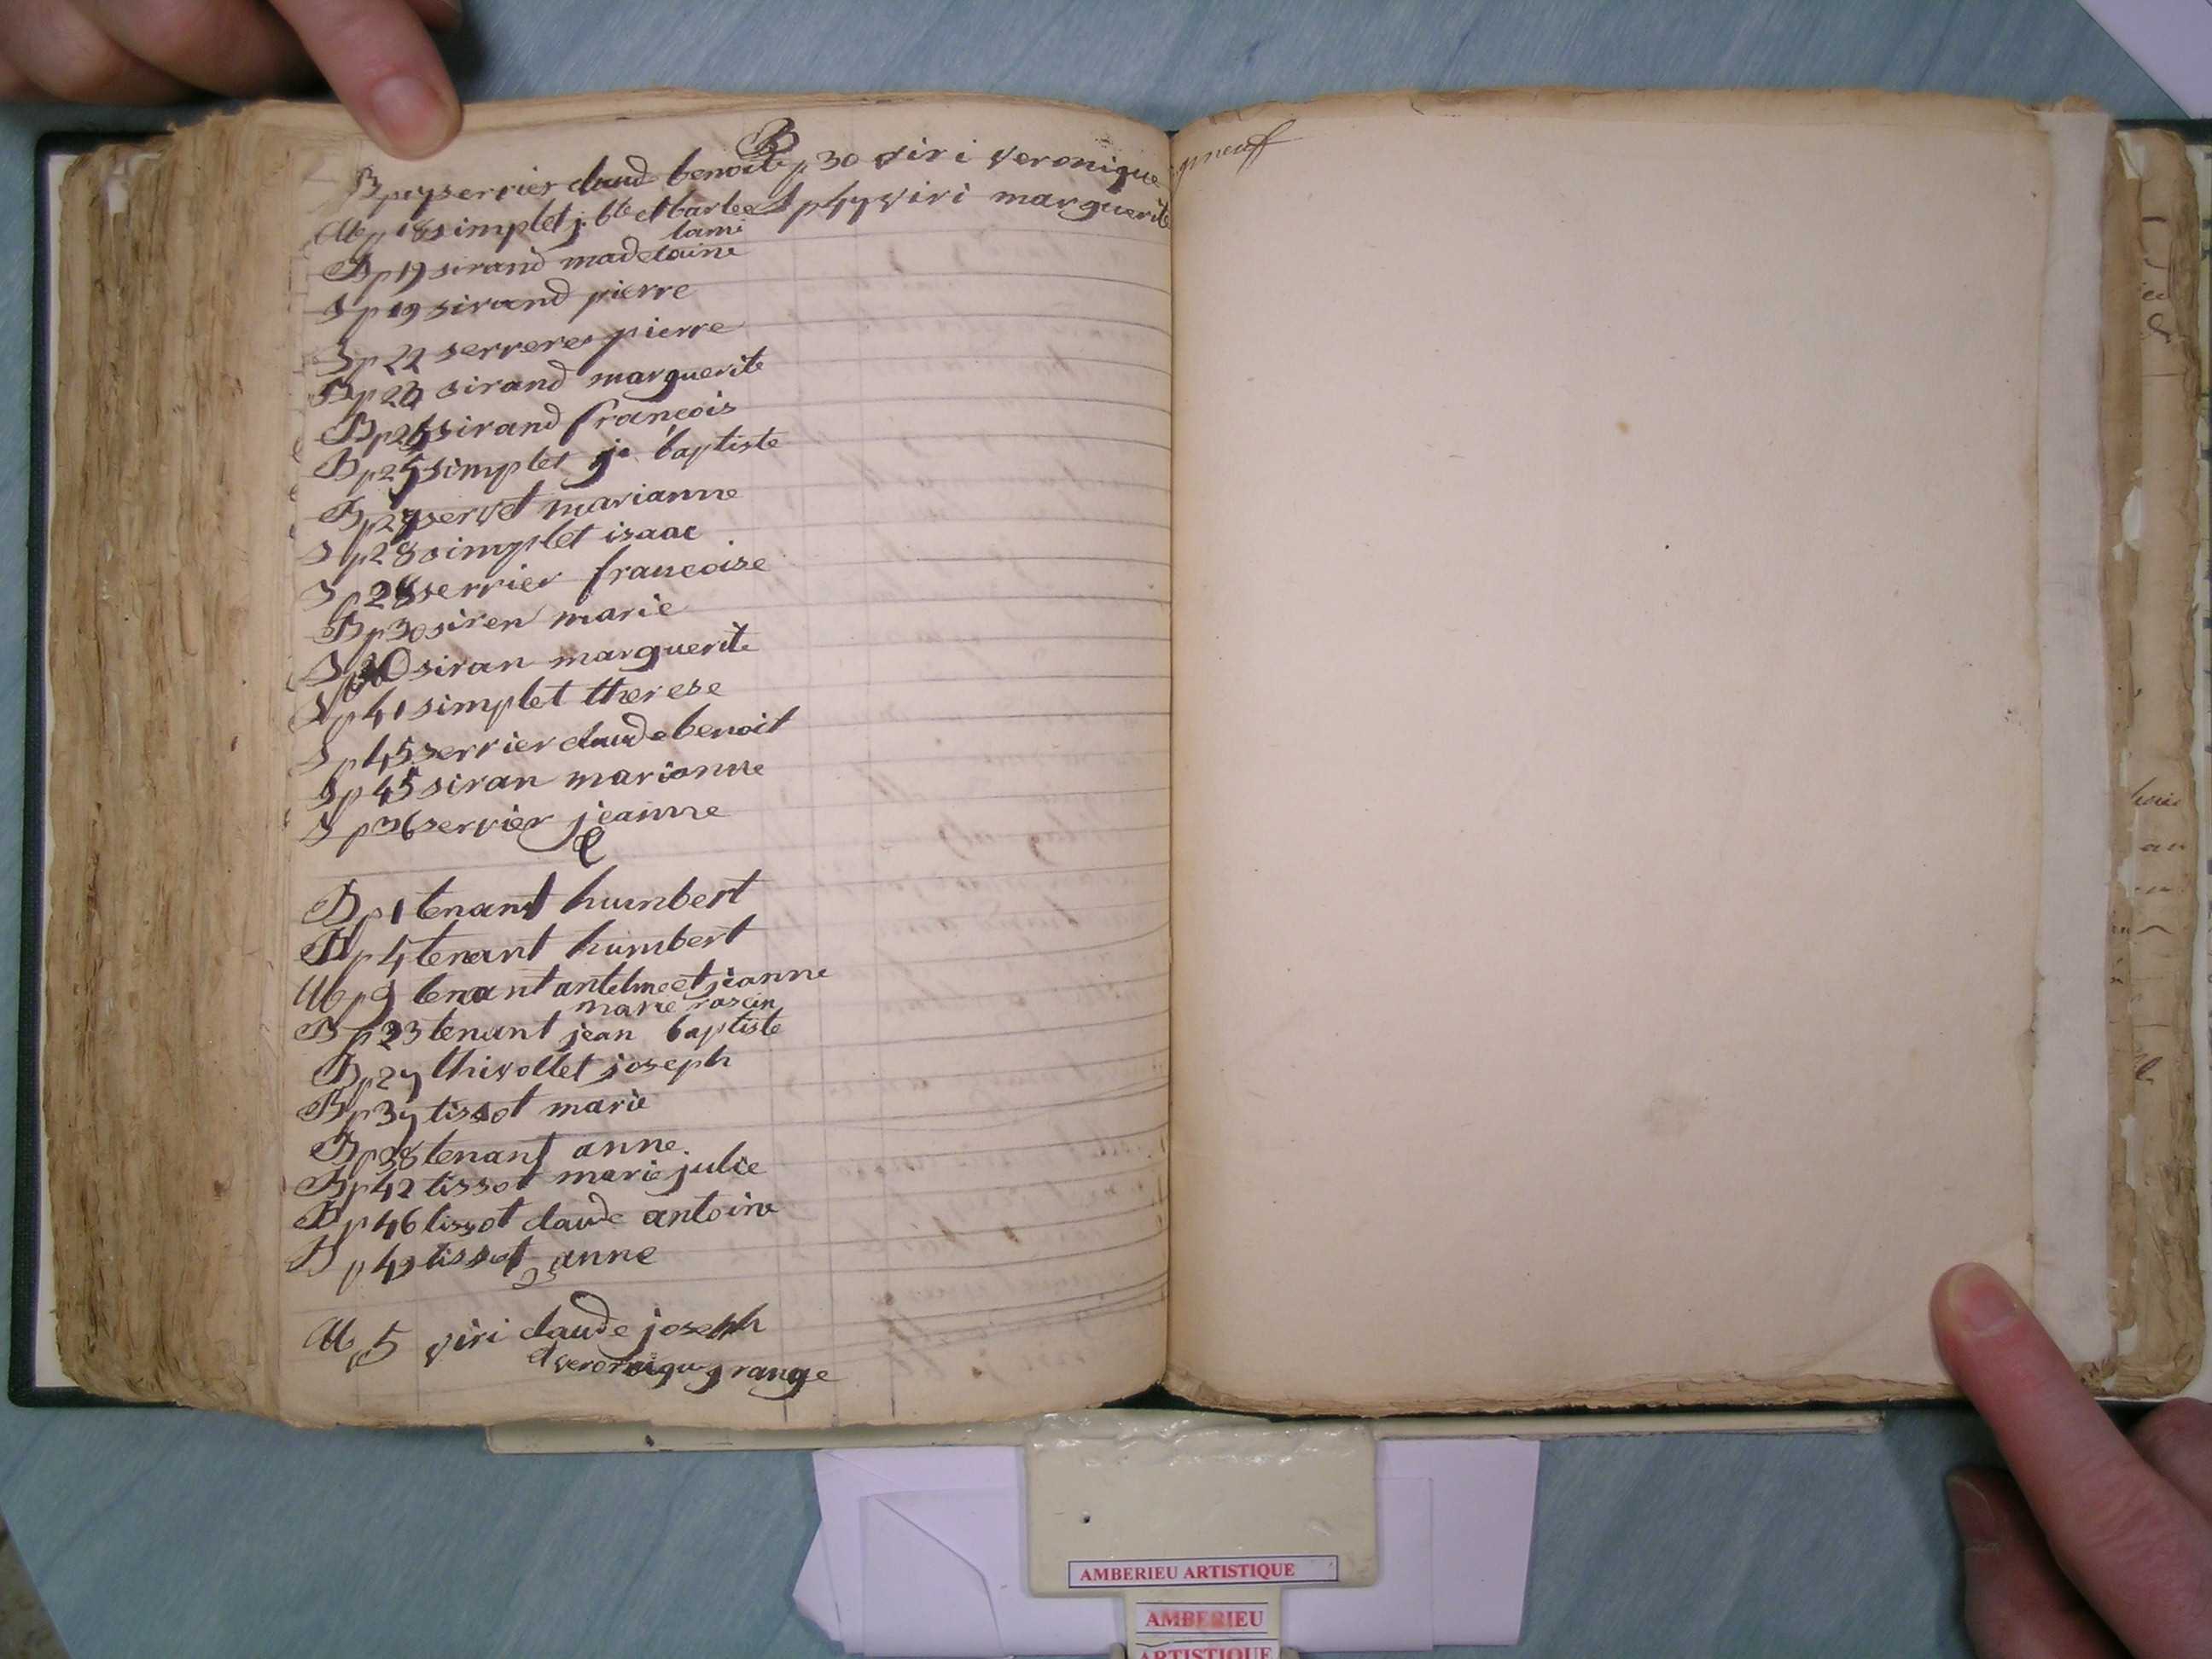 B p 17 serrier claud benoit
M p 18 simplet j. bte et barbe
lami
B p 19 sirand madelaine
S p 19 sirand pierre
S p 22 serreres pierre
B p 23 sirand marguerite
B p 25 sirand françois
B p 25 simplet j. baptiste
B p 27 servet marianne
S p 28 simplet isaac
S p 28 serrier francoise
B p 30 siren marie
S siran marguerite
S p 41 simplet therese
S p 45 serrier claude benoit
S p 45 siran marianne
S p 36 serrier jeanne
B p 1 tenant humbert
p 4 tenant humbert
M p 9 tenant antelme et jeanne
marie rosein
B p 23 tenant jean baptiste
B p 27 thivollet joseph
B p 37 tissot marie
B p 38 tenant anne
B p 42 tissot marie julie
B p 46 tissot claude antoine
B p 49 tissot anne
M p 5 viri claude joseph
et veronique grange
B
p 30 viri veronique
S p 47 viri marguerite
AMBERIEU ARTISTIQUE
AMBERIEU
ARTISTIQUE